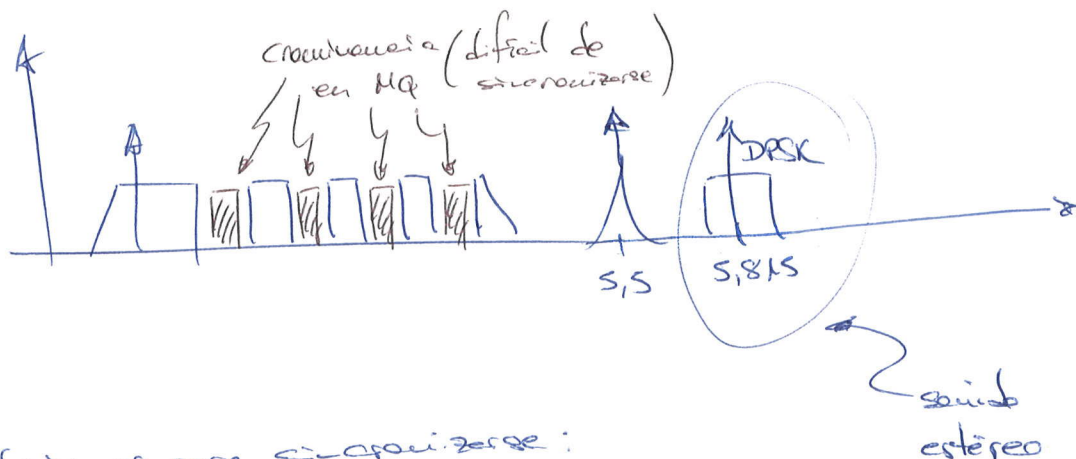 crominancia (difícil de
en MQ sincronizarse)
DPSK
5,5
5,815
sonido
estéreo
sincronizarse: